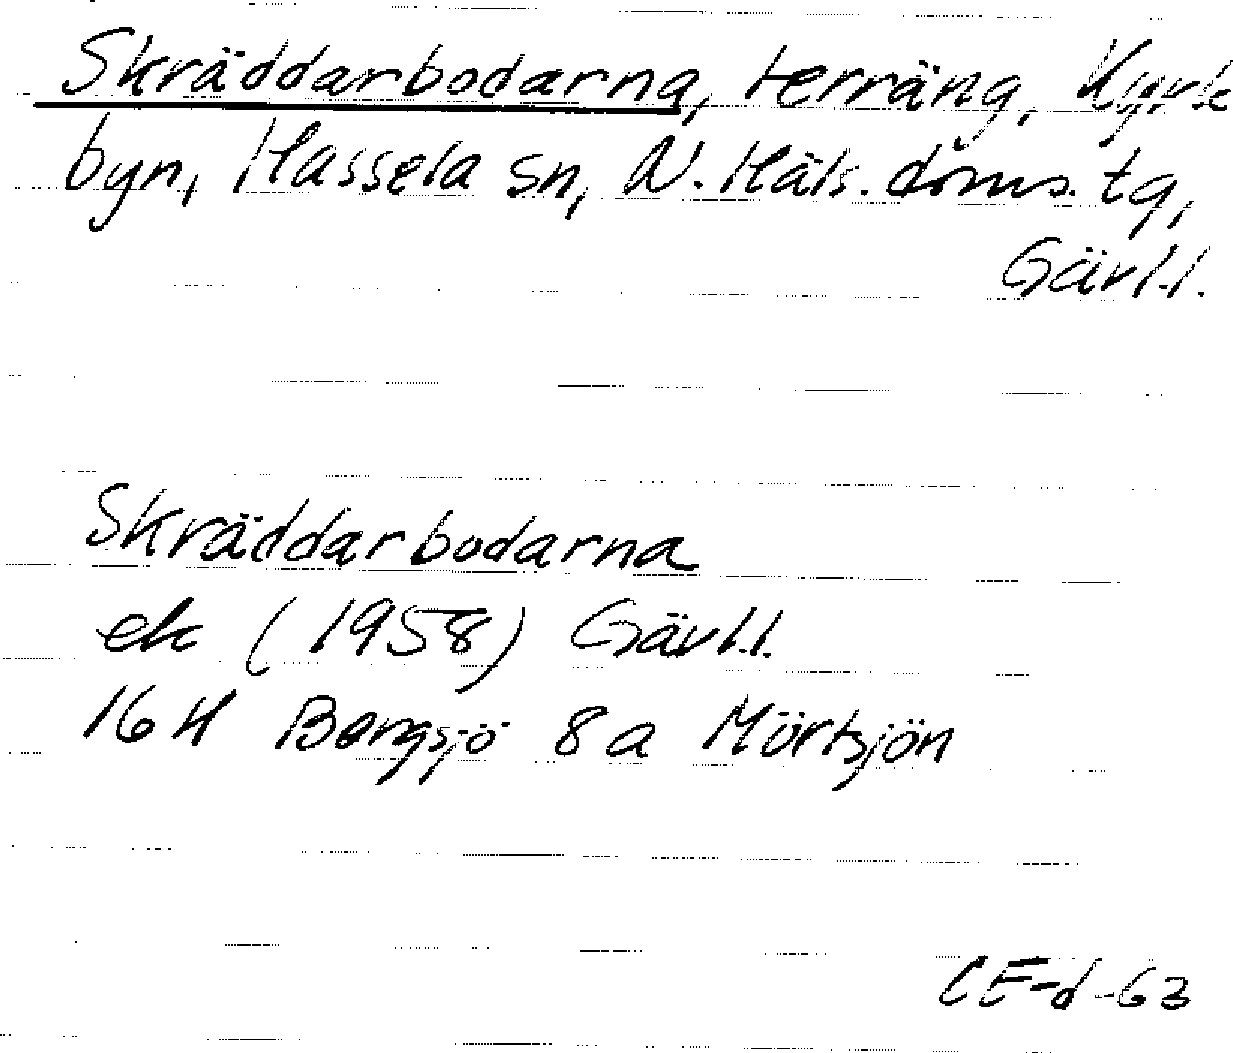 Skräddarbodarna, terräng, Kyrk
byn, Hassela sn, N. Häls. doms. tg,
Gävl.l.
Skräddarbodarna
ek (1958) Gävl.l.
16H Bergsjö 8a Mörtsjön
CE-d-63